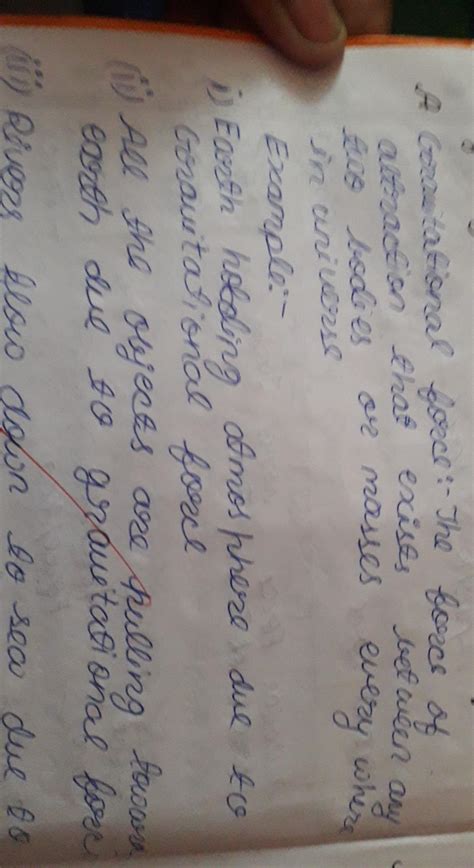 A Gravitational force:- The force of
attraction that exists between any
two bodies or masses every where
in universe
Example:-
i) Earth holding atmosphere due to
Gravitational force
(ii) All the objects are pulling
earth due to gravitational
(iii) Rivers flow down to sea due to